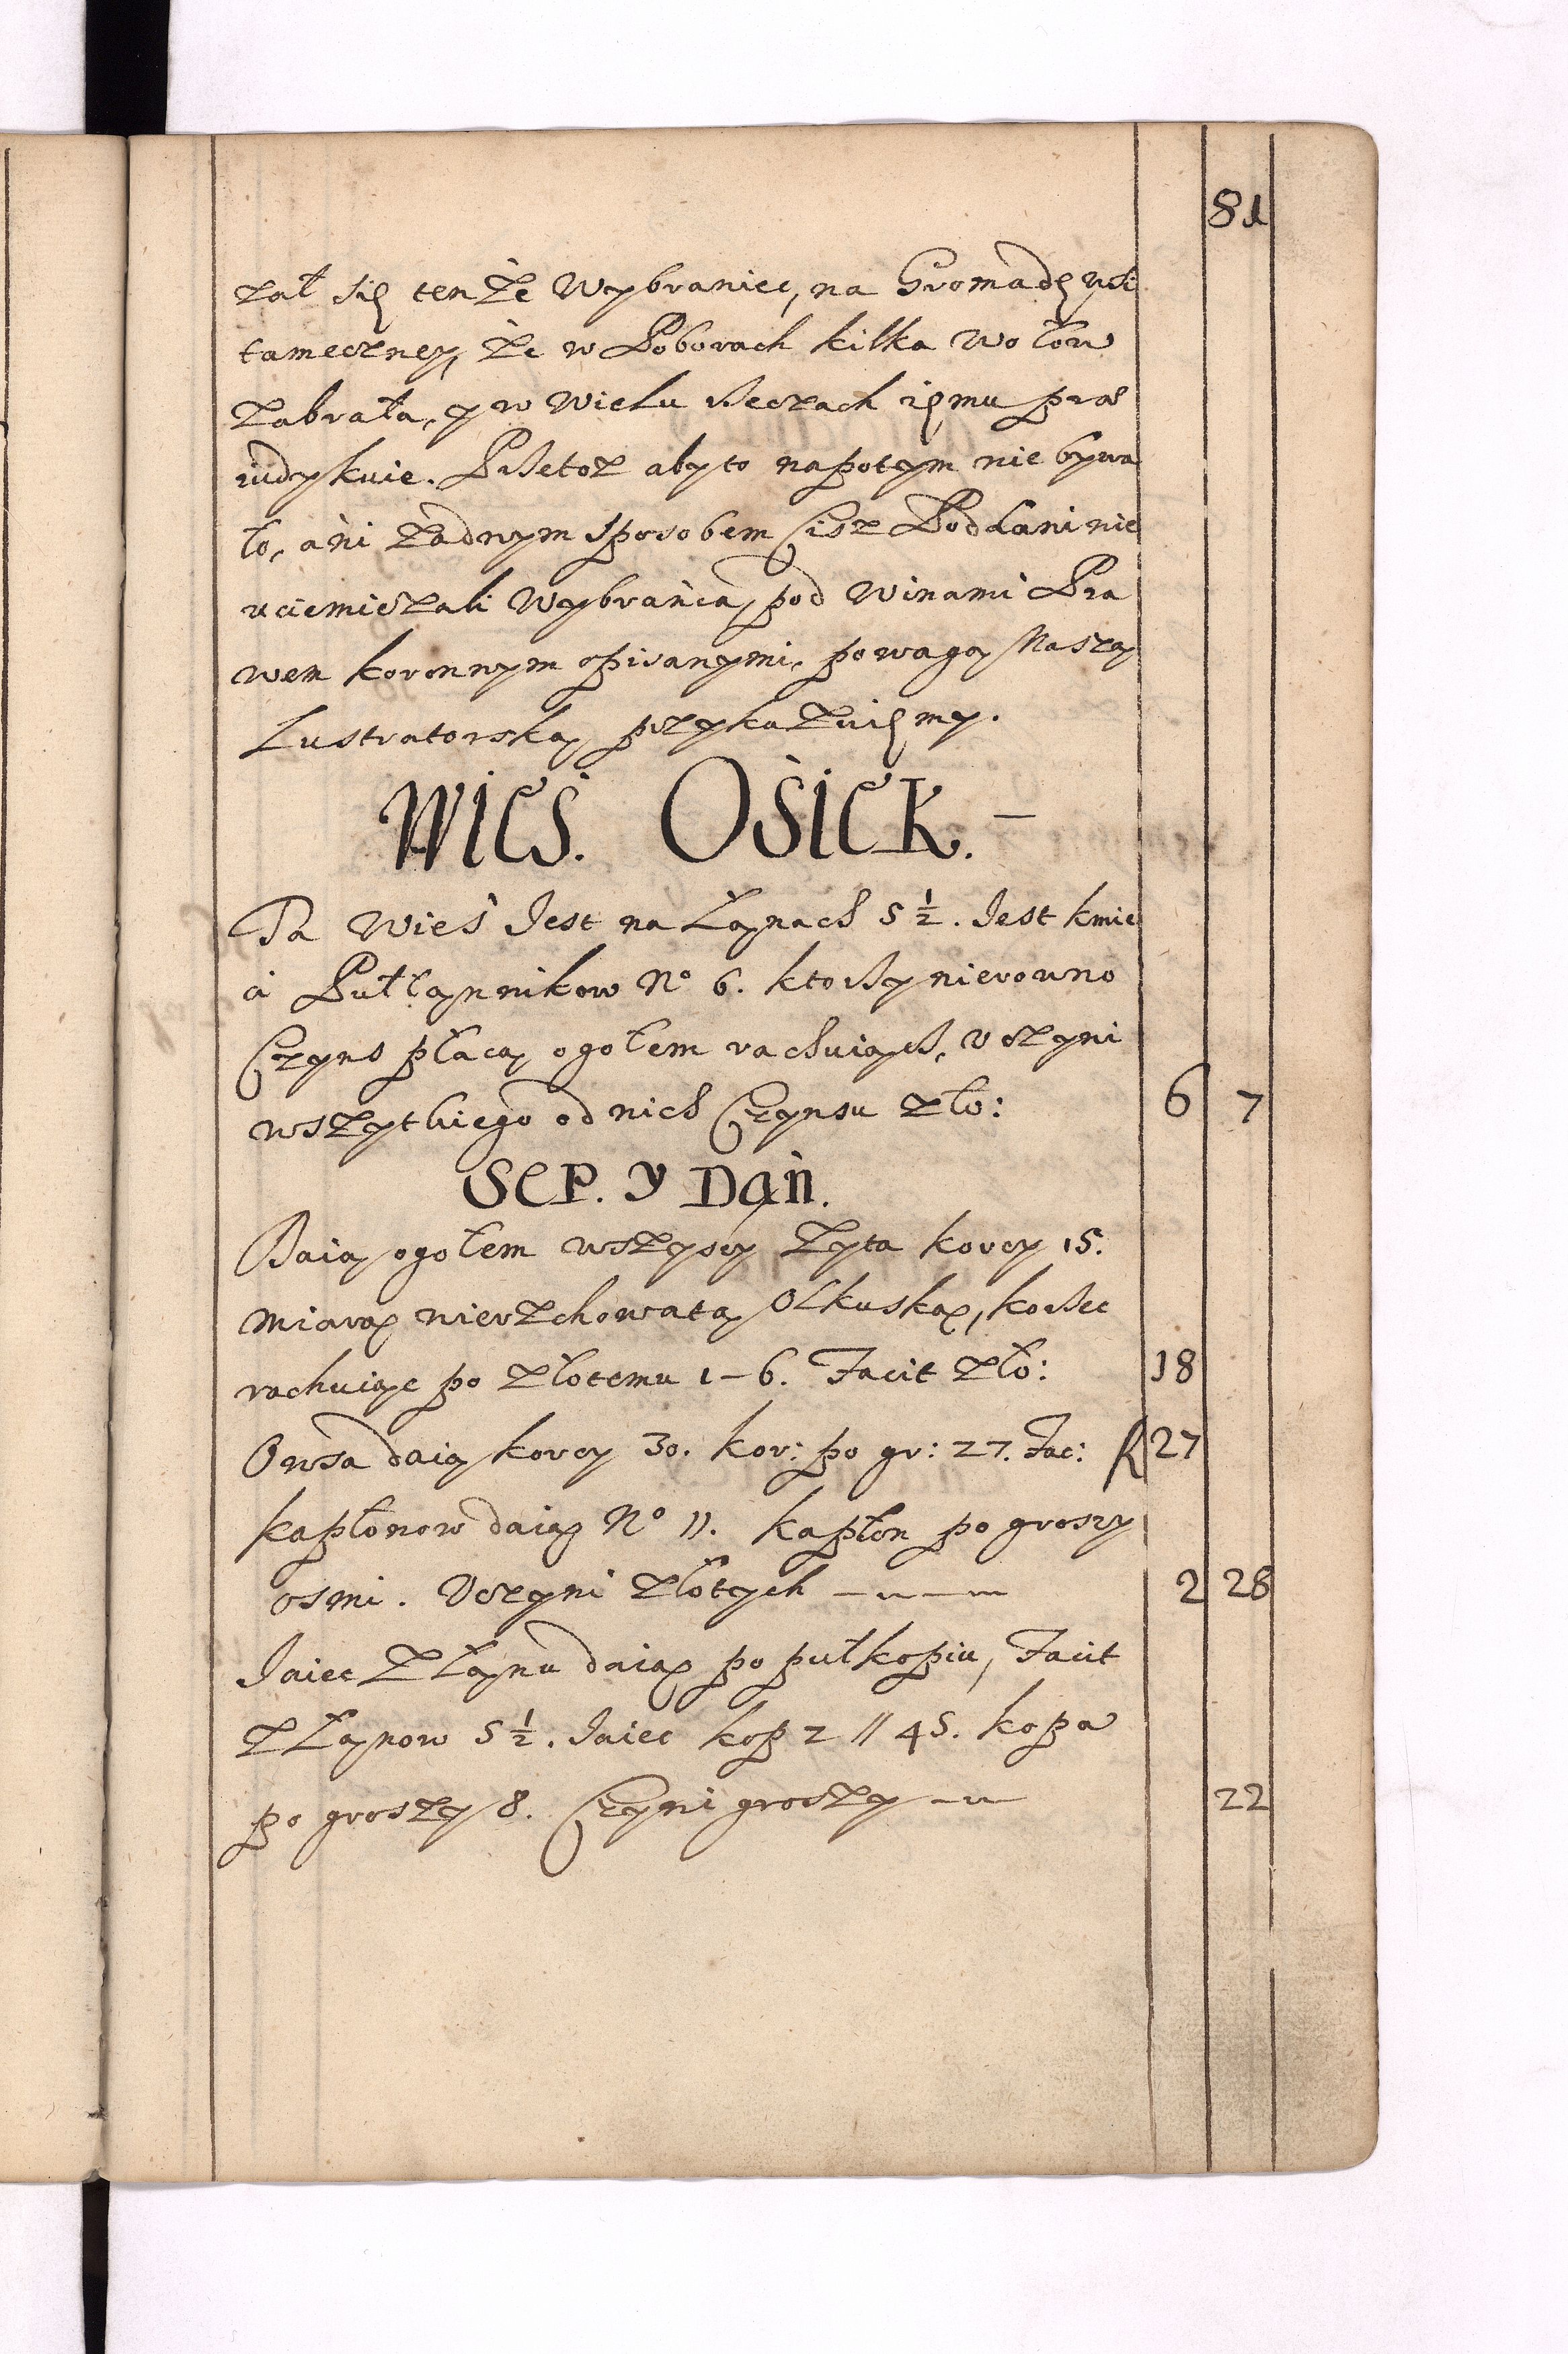 81
zał się tenże Wybraniec, na Gromadę wsi
tameczney, że w Poborach kilka wołow
zabrała, y w wielu rzeczach iemu prae
iudykuie. Przetoz aby to napotym nie bywa
ło, ani żadnym sposobem Cisz Poddani nie
uciemięzali Wybrańca, pod winami Pra
wem koronnym opisanymi, powagą Naszą
Lustratorską przykazuięmy.
WIEŚ. OSIEK. –
Ta Wieś Jest na Łanach 5 1/2. Jest kmie
ci Pułłannikow No 6. ktorzy nierowno
Czyns płacą ogołem rachuiąc, uczyni
wszytkiego od nich Czynsu zło: 6 7
SEP. Y Dań.
Daią ogołem wszyscy żyta korcy 15.
miarą wierzchowatą Olkuską, korzec
rachuiąc po złotemu 1–6. Facit zło: 18
Owsa daią korcy 30. kor: po gr: 27. Fac: f 27
kapłonow daią No 11. kapłon po groszy
osmi. Uczyni złotych 2 28
Jaiec z Łanu daią po pułkopiu, Facit
z Łanow 5 1/2. Jaiec kop 2 // 45. kopa
po groszy 8. Czyni groszy 22